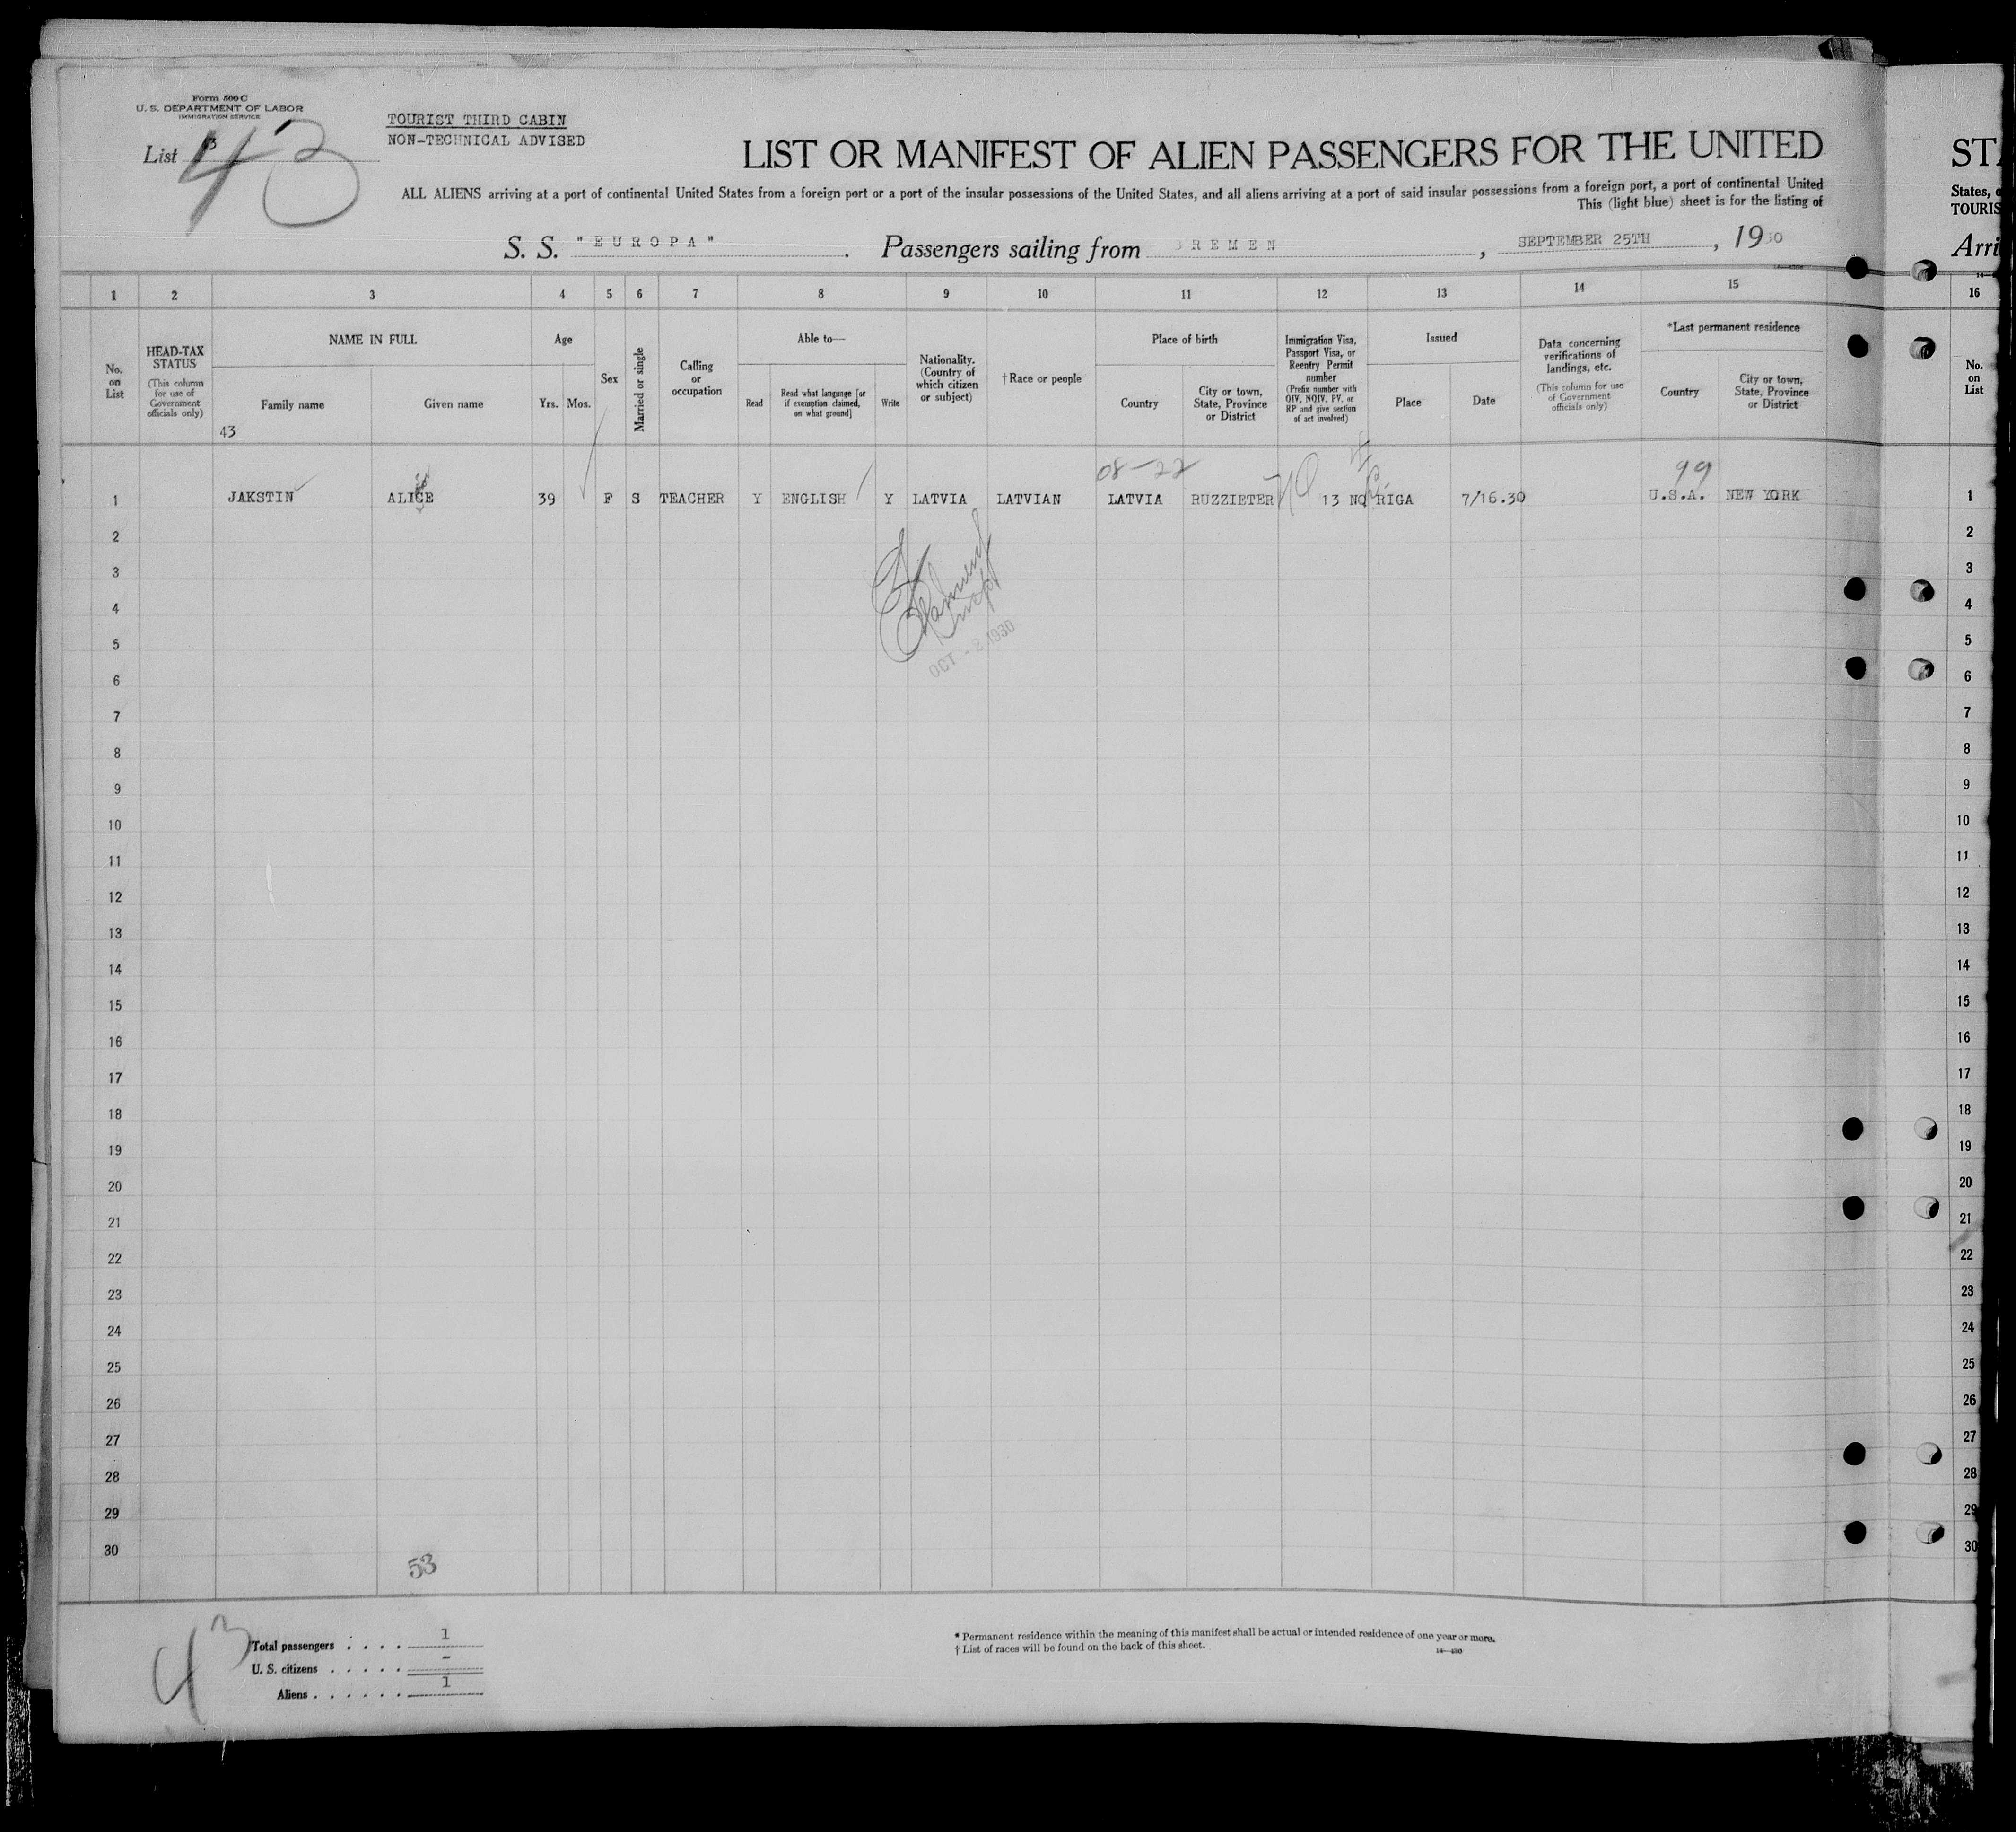 Form 500 C
U. S. DEPARTMENT OF LABOR
IMMIGRATION SERVICE
List
43
TOURIST THIRD CABIN
NON-TECHNICAL ADVISED
LIST OR MANIFEST OF ALIEN PASSENGERS FOR THE UNITED
ALL ALIENS arriving at a port of continental United States from a foreign port or a port of the insular possessions of the United States, and all aliens arriving at a port of said insular possessions from a foreign port, a port of continental United
This (light blue) sheet is for the listing of
S. S. "EUROPA". Passengers sailing from BREMEN, SEPTEMBER 25TH, 1930
STA
States, o
TOURIS
Arri
1 2 3 4 5 6 7 8 9 10 11 12 13 14 15 16
No. on List
HEAD-TAX STATUS
(This column for use of Government officials only)
NAME IN FULL
Family name
Given name
43
Age
Yrs. Mos.
Sex
Married or single
Calling or occupation
Able to—
Read
Read what language [or if exemption claimed, on what ground]
Write
Nationality. (Country of which citizen or subject)
† Race or people
Place of birth
Country
City or town, State, Province or District
Immigration Visa, Passport Visa, or Reentry Permit number
(Prefix number with QIV, NQIV, PV, or RP and give section of act involved)
Issued
Place
Date
Data concerning verifications of landings, etc.
(This column for use of Government officials only)
*Last permanent residence
Country
City or town, State, Province or District
No. on List
08-22
99
1 JAKSTIN ALICE 39 F S TEACHER Y ENGLISH Y LATVIA LATVIAN LATVIA RUZZIETER 13 NQ RIGA 7/16.30 U.S.A. NEW YORK 1
2 2
3 3
4 4
5 5
OCT - 2 1930
6 6
7 7
8 8
9 9
10 10
11 11
12 12
13 13
14 14
15 15
16 16
17 17
18 18
19 19
20 20
21 21
22 22
23 23
24 24
25 25
26 26
27 27
28 28
29 29
30 30
53
43
Total passengers . . . . 1
U. S. citizens . . . . . -
Aliens . . . . . . 1
* Permanent residence within the meaning of this manifest shall be actual or intended residence of one year or more.
† List of races will be found on the back of this sheet.